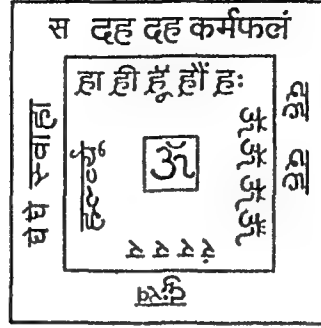 स दह दह कर्मफलं
दह दह
दुःख
घे घे स्वाहा
ह्रा ह्री ह्रूँ ह्रौं ह्रः
ॐ ॐ ॐ ॐ
ॐ